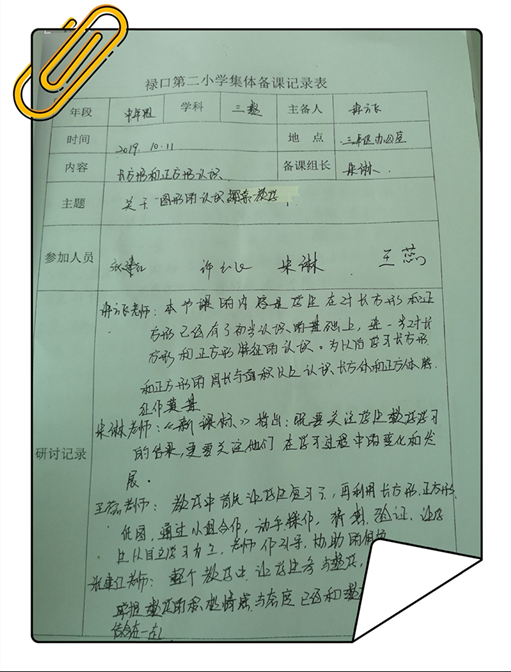 禄口第二小学集体备课记录表
年段 中年段 学科 三数 主备人
时间 2019.10.11 地点 三年级办公室
内容 长方形和正方形认识 备课组长 朱琳
主题 关于“图形的认识
参加人员 张建红 朱琳 王蕊
老师：本节课的内容是学生在对长方形和正
方形已经有了初步认识的基础上，进一步对长
方形和正方形特征的认识。为以后学习长方形
和正方形的周长与面积以及认识长方体和正方体特
征作奠基
研讨记录
朱琳老师：《新课标》指出：既要关注学生数学学习
的结果，更要关注他们在学习过程中的变化和发
展。
王蕊老师：教学中首先让学生复习了，再利用长方形、正方形
通过小组合作，动手操作，猜测、验证，让学
生以自主学习为主，老师作引导、协助的
张建红老师：整个教学中，让学生参与
数学的积极情感与态度已经和
结合在一起